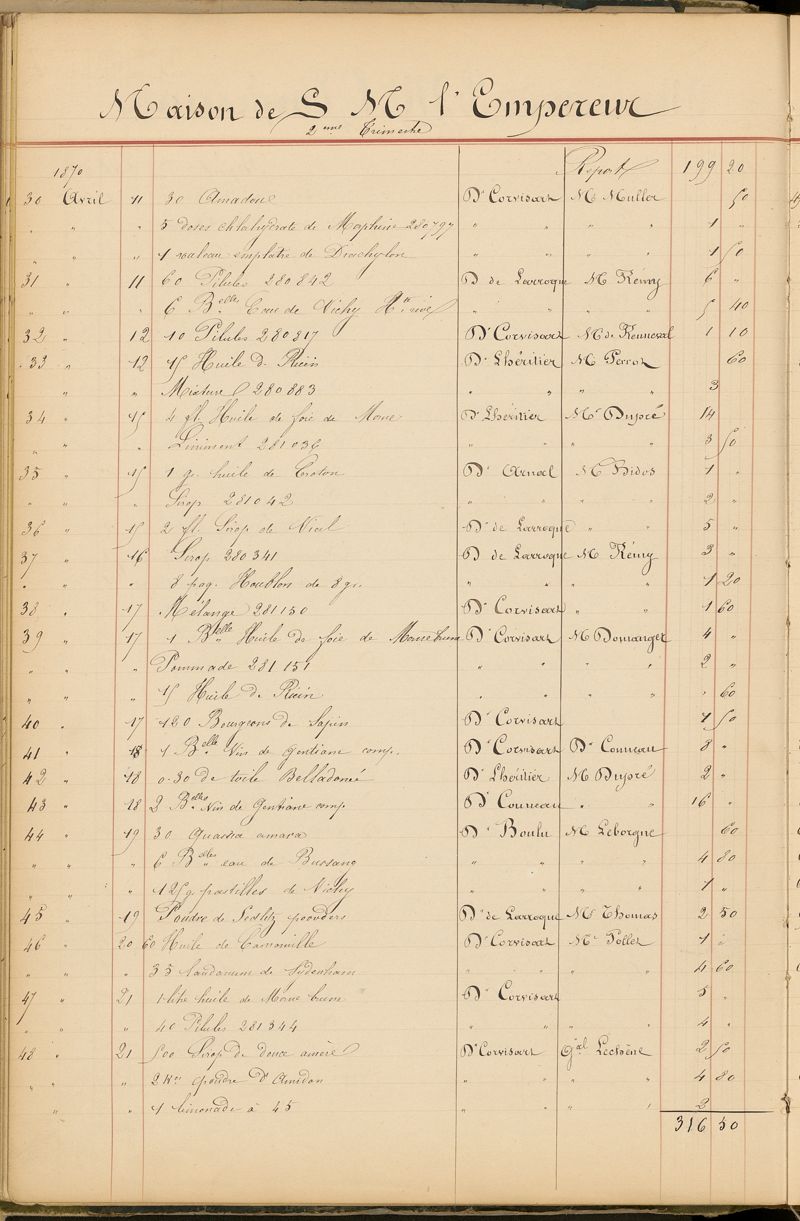 Maison de S M l'Empereur
2eme Trimestre
1870 Report 199 20
30 Avril 11 30 Amadou Dr Corvisart Mr Muller 50
" " " 5 doses chlohydrate de Morphine 280797 " " " " 1 "
" " " 1 rouleau emplatre de Diachylon " " " " 1 50
31 " 11 60 Pilules 280842 D de Larroque Mr Remy 6 "
" " " 6 Belle Eau de Vichy Hte rive " " " " 5 40
32 " 12 10 Pilules 280817 Dr Corvisart M de Renneval 1 10
33 " 12 15 Huile de Ricin Dr Lhéritier Mr Perrot 60
" " Mixture 280883 " " " " 3
34 " 15 4 fl. Huile de foie de Morue Dr Lheritier Mr Dupré 14
" " Liniment 281036 " " " " 3 50
35 " 15 1 gr. huile de Croton Dr Arnal Mr Bidos 1 "
" " " Sirop 281042 " " " " 2 "
36 " 15 2 fl. Sirop de Vial Dr de Larroque " " 5 "
37 " 16 Sirop 280341 D de Larroque Mr Rémy 3 "
" " " 8 paq. Houblon de 8 gr. " " " " 1 20
38 " 17 Mélange 281130 Dr Corvisart " " 1 60
39 " 17 1 Belle Huile de foie de Morue brune Dr Corvisart Mr Domanger 4 "
" " " Pommade 281151 " " " " 2 "
" " " 15 Huile de Ricin " " " " " 60
40 " 17 120 Bourgeons de Sapin Dr Corvisart 1 50
41 " 18 1 Belle Vin de gentiane comp. Dr Corvisart Dr Conneau 8 "
42 " 18 0.30 de toile Belladonée Dr Lhéritier Mr Dupré 2 "
43 " 18 2 Belles Vin de Gentiane comp. Dr Conneau " " 16 "
44 " 19 30 Quassia amara Dr Boulu Mr Leborgne 60
" " " 6 Belles eau de Bussang " " " " 4 80
" " " 125 g. pastilles de Vichy " " " " 1 "
45 " 19 Poudre de Sedlitz powders Dr de Larroque Mr Thomas 2 50
46 " 20 60 Huile de Camomille Dr Corvisart Mr Pollet 1 "
" " " 35 laudanum de Sydenham " " " " 4 60
47 " 21 1 litre huile de Morue brune Dr Corvisart 5 "
" " " 40 Pilules 281344 " " " " 4 "
48 " 21 500 Sirop de douce amère Dr Corvisart Gal Lechène 2 50
" " " poudre d'Amidon " " " " 4 80
" " 1 limonade à 45 " " " " 2
316 50